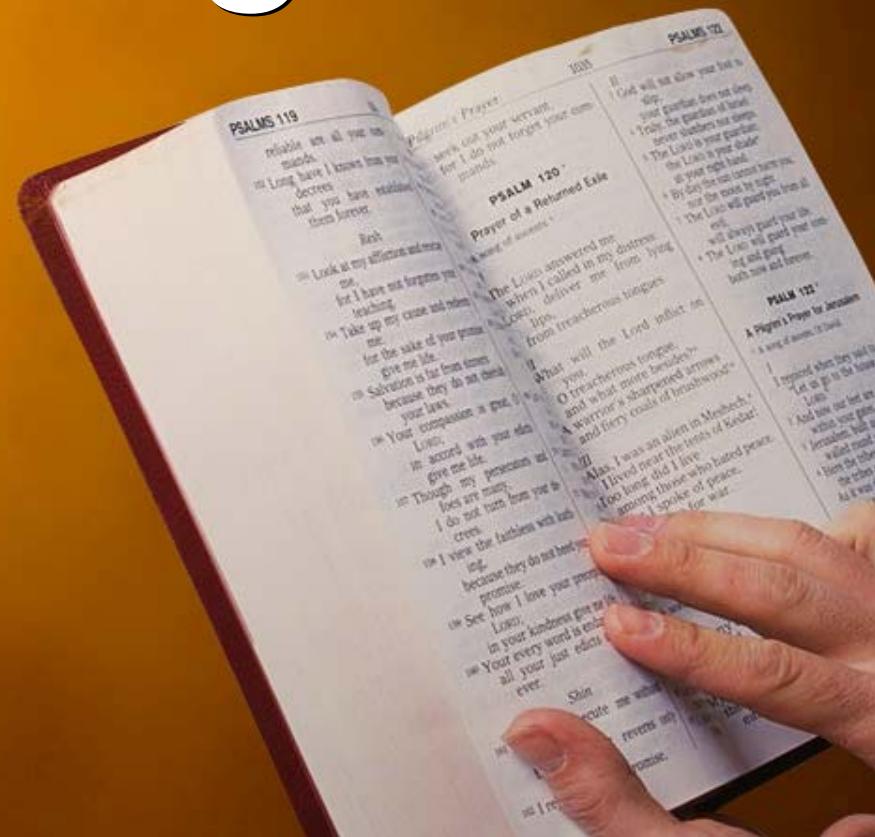 PSALMS 119
reliable are all your com-
mands.
152 Long have I known from your
decrees
that you have established
them forever.
Resh
153 Look at my affliction and rescue
me,
for I have not forgotten your
teaching.
154 Take up my cause and redeem
me;
for the sake of your promise
give me life.
155 Salvation is far from sinners
because they do not cherish
your laws.
156 Your compassion is great, O
LORD;
in accord with your edicts
give me life.
157 Though my persecutors and
foes are many,
I do not turn from your de-
crees.
158 I view the faithless with loath-
ing,
because they do not heed your
promise.
159 See how I love your precepts,
LORD;
in your kindness give me life.
160 Your every word is enduring;
all your just edicts
ever.
Shin
me without
reveres only
promise.
162 I
Pilgrim's Prayer
1035
PSALMS 122
seek out your servant,
for I do not forget your com-
mands.
PSALM 120*
Prayer of a Returned Exile
A song of ascents.*
The LORD answered me
when I called in my distress:
LORD, deliver me from lying
lips,
from treacherous tongues.
II
What will the Lord inflict on
you,
O treacherous tongue,
and what more besides?*
A warrior's sharpened arrows
and fiery coals of brushwood!*
III
Alas, I was an alien in Meshech,*
I lived near the tents of Kedar!
Too long did I live
among those who hated peace.
I spoke of peace,
for war.
II
3 God will not allow your foot to
slip;
your guardian does not sleep.
4 Truly, the guardian of Israel
never slumbers nor sleeps.
5 The LORD is your guardian;
the LORD is your shade*
at your right hand.
6 By day the sun cannot harm you,
nor the moon by night.
7 The LORD will guard you from all
evil,
will always guard your life.
8 The LORD will guard your com-
ing and going
both now and forever.
PSALM 122*
A Pilgrim's Prayer for Jerusalem
1 A song of ascents. Of David.
I
I rejoiced when they said to
"Let us go to the house
LORD."
2 And now our feet are
within your gates,
3 Jerusalem, built
walled round
4 Here the tribes
the tribes
As it was